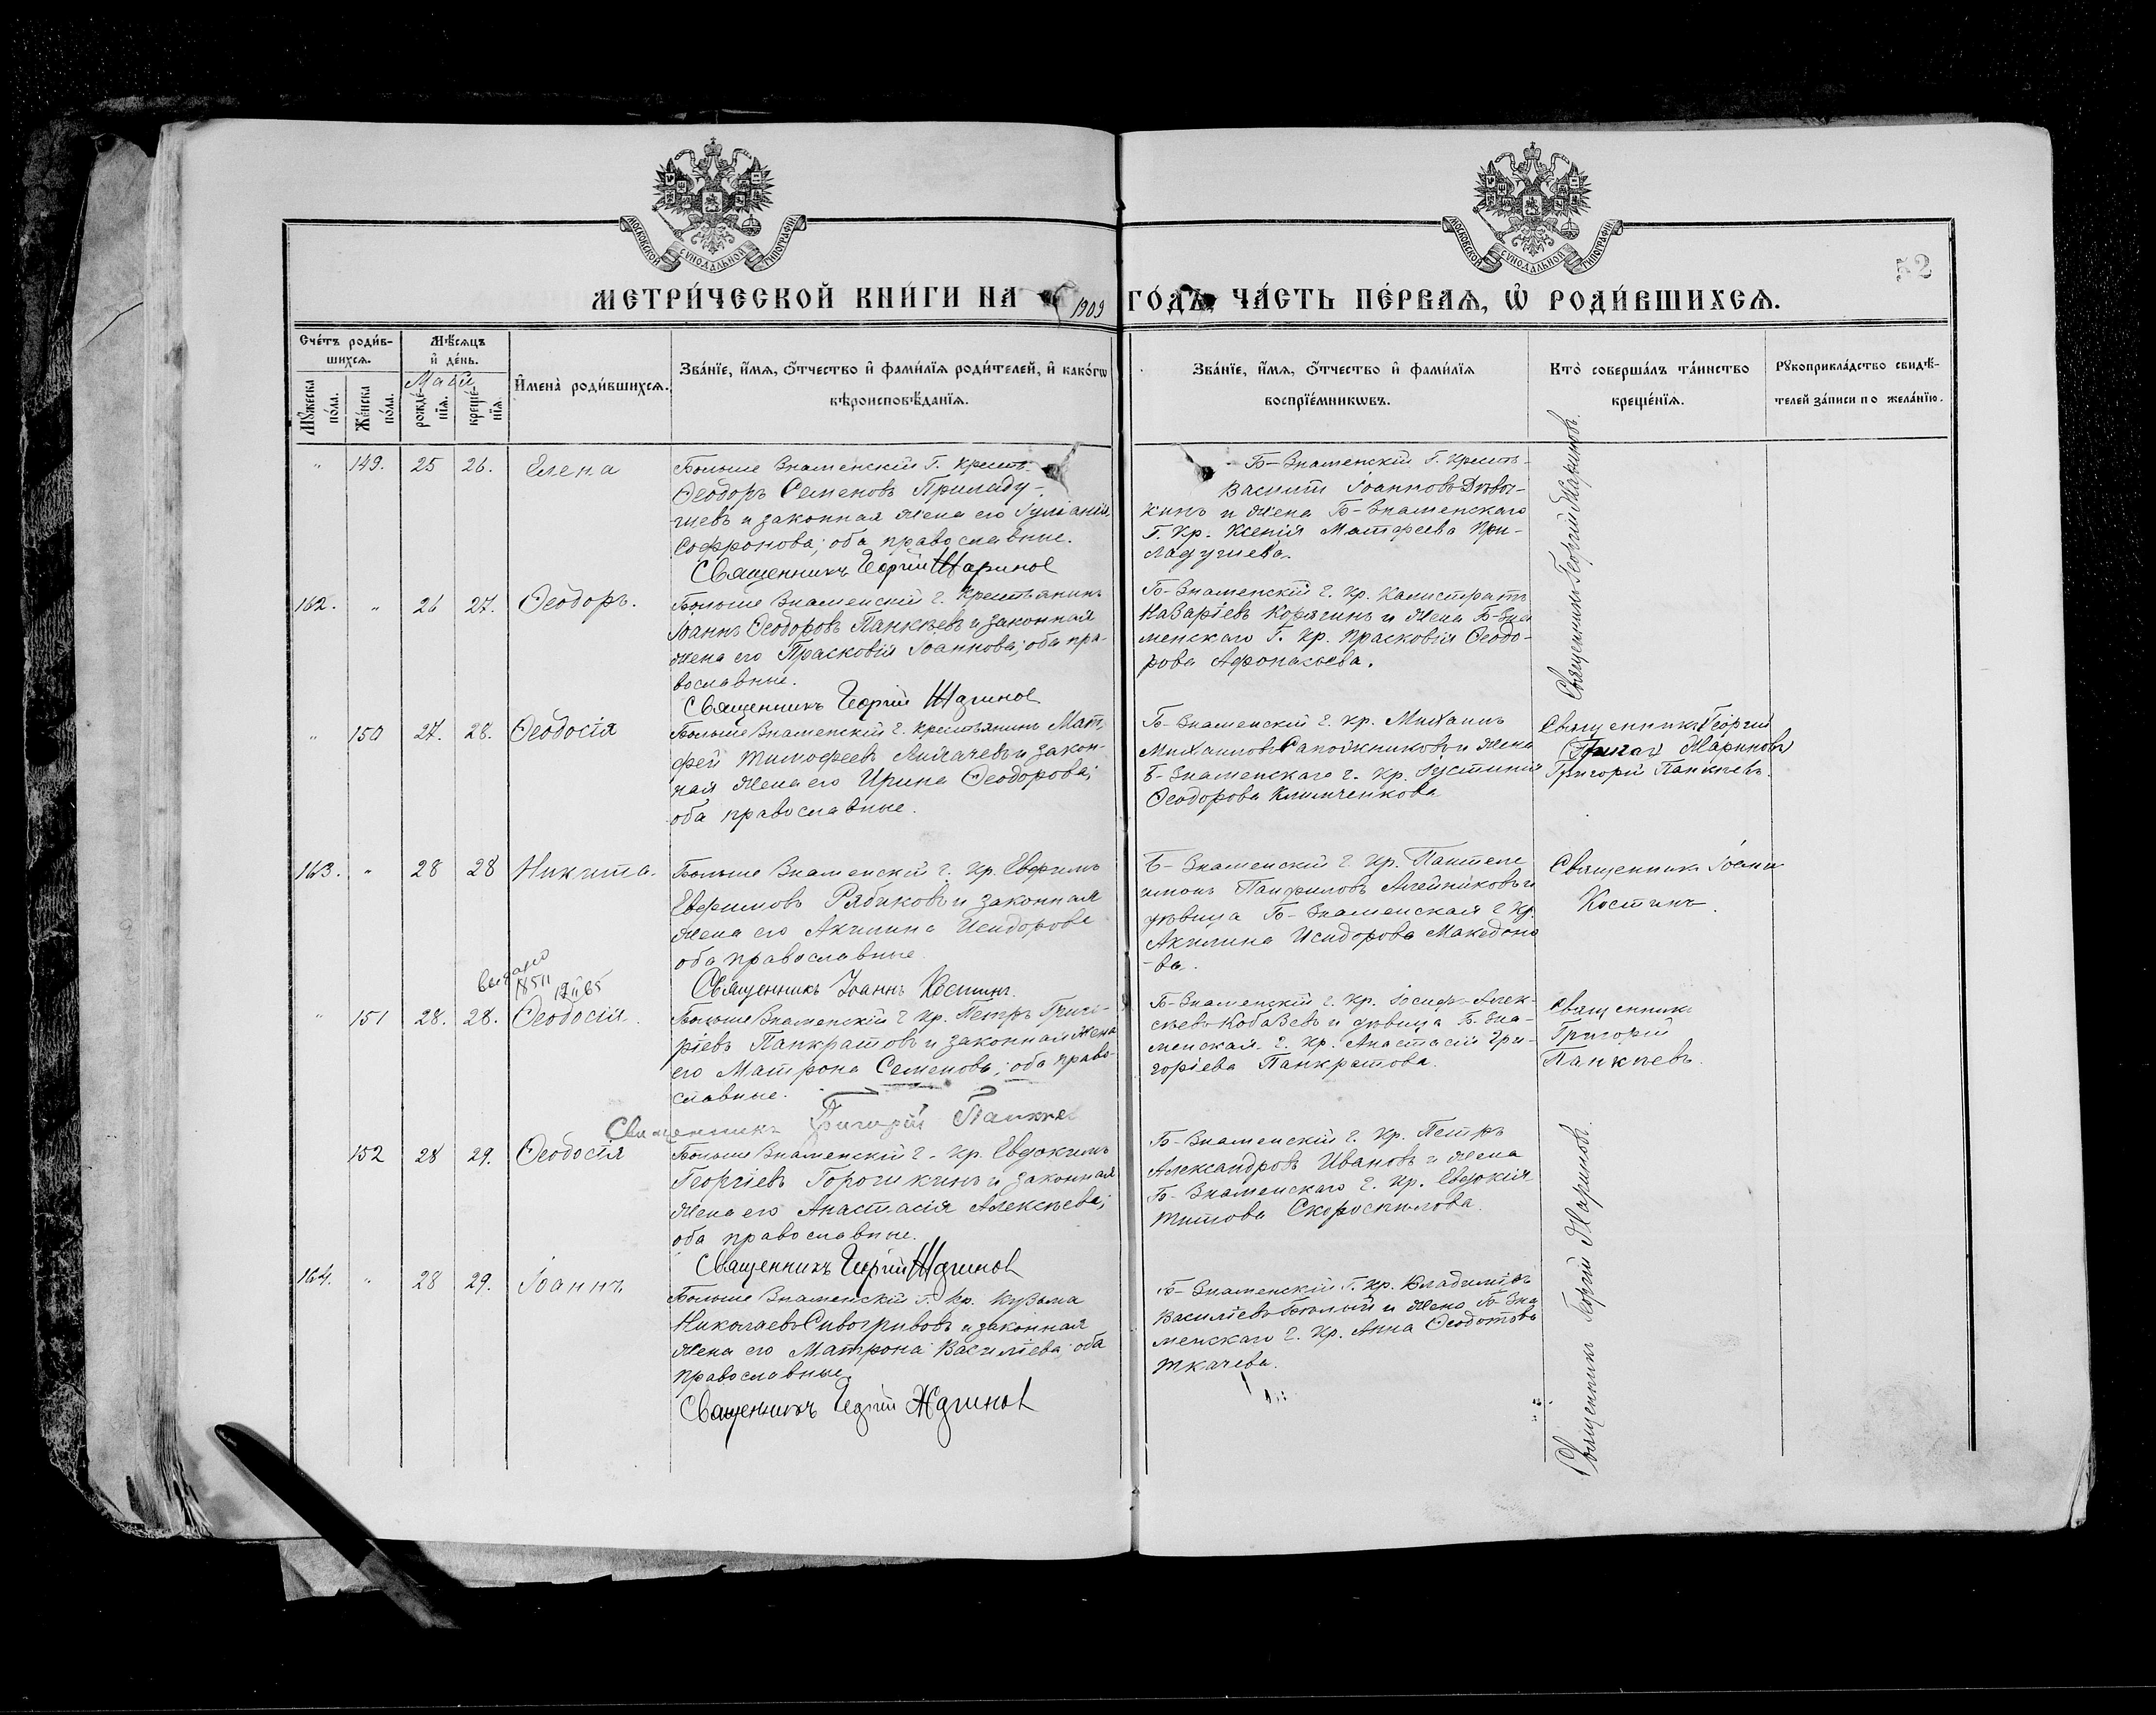 МОСКОВСКОЙ СѴНОДАЛЬНОЙ ТИПОГРАФІИ
МОСКОВСКОЙ СѴНОДАЛЬНОЙ ТИПОГРАФІИ
52
МЕТРИ́ЧЕСКОЙ КНИ́ГИ НА 1909 ГО́ДЪ ЧА́СТЬ ПЕ́РВАѦ, Ѡ҆ РОДИ́ВШИХСѦ.
Сче́тъ роди́в-
шихсѧ.
Мꙋ́жеска по́ла.
Же́нска по́ла.
Мѣ́сѧцъ
и҆ де́нь.
Май
рожде́-нїѧ.
креще́-нїѧ.
И҆мена̀ роди́вшихсѧ.
Зва́нїе, и҆́мѧ, ѻ҆́тчество и҆ фами́лїѧ роди́телей, и҆ како́гѡ
вѣроисповѣ́данїѧ.
Зва́нїе, и҆́мѧ, ѻ҆́тчество и҆ фами́лїѧ
воспрїе́мникѡвъ.
Кто̀ соверша́лъ та́инство
креще́нїѧ.
Рꙋкоприкла́дство свидѣ́-
телей за́писи по жела́нїю.
" 149. 25 26. Елена
Больше Знаменскій Г. Крест-
Ѳеодоръ Семеновъ Приладу-
гиевъ и законная жена его Іуліанія
Софронова; оба православные.
Священникъ Георгій Жаринов
Б-Знаменскій Г. Крест-
Василій Іоанновъ
кинъ и жена Б-Знаменскаго
Г. Кр. Ксенія Матфеева При-
ладугиева.
Священникъ Георгій Жариновъ.
162. " 26 27. Ѳеодоръ.
Больше Знаменскій г. Крестьянинъ
Іоаннъ Ѳеодоровъ Панкѣевъ и законная
жена его Прасковія Іоаннова; оба пра-
вославные.
Священникъ Георгій Жаринов
Б-Знаменскій г. Кр. Калистратъ
Назаріевъ Корягинъ и жена Б-Зна
менскаго Г. Кр. Прасковія Ѳеодо-
рова Афонасьева.
" 150 27. 28. Ѳеодосія
Больше Знаменскій г. крестьянинъ Мат-
фей Тимофеевъ и закон-
ная жена его Ирина Ѳеодорова;
оба православные.
Б-Знаменскій г. кр. Михаилъ
Михаиловъ Сапожниковъ и жена
Б-Знаменскаго г. кр. Іустинія
Ѳеодорова Климченкова
Священникъ Георгій
Жариновъ
Григорій Панкѣевъ.
163. " 28 28 Никита.
Больше Знаменскій г. кр. Евфимъ
Евфимовъ Рябиковъ и законная
жена его Акилина Исидорова
оба православные.
Священникъ Іоаннъ Костинъ.
Б-Знаменскій г. кр. Пантеле
имонъ Панфиловъ Алейниковъ и
дѣвица Б-Знаменская г. Кр.
Акилина Исидорова Македоно
-ва.
Священникъ Іоаннъ
Костинъ.
выдано
" 151 28. 28. Ѳеодосія.
Больше Знаменскій г кр. Петръ Григо-
ріевъ Панкратовъ и законная жена
его Матрона Семенова; оба право-
славные.
Священникъ Григорій Панкѣев
Б-Знаменскій г. кр. Іосифъ Алек-
сѣевъ Кобазевъ и дѣвица Б-Зна-
менская г. кр. Анастасія Гри-
горіева Панкратова.
Священникъ
Григорій
Панкѣевъ.
152 28 29. Ѳеодосія
Больше Знаменскій г. кр. Евдокимъ
Георгіевъ и законная
жена его Анастасія Алексѣева;
оба православные.
Священникъ Георгій Жаринов
Б-Знаменскій г. Кр. Петръ
Александровъ Ивановъ и жена
Б-Знаменскаго г. кр. Евдокія
Титова Скороспѣлова.
Священникъ Георгій Жариновъ.
164. " 28 29. Іоаннъ
Больше Знаменскій г. кр. Кузьма
Николаевъ Сивогривовъ и законная
жена его Матрона Василіева; оба
православные.
Священникъ Георгій Жаринов
Б-Знаменскій г. кр. Владиміръ
Василіевъ Бѣлый и жена Б-Зна
менскаго г. кр. Анна Ѳеодотова
Ткачева.